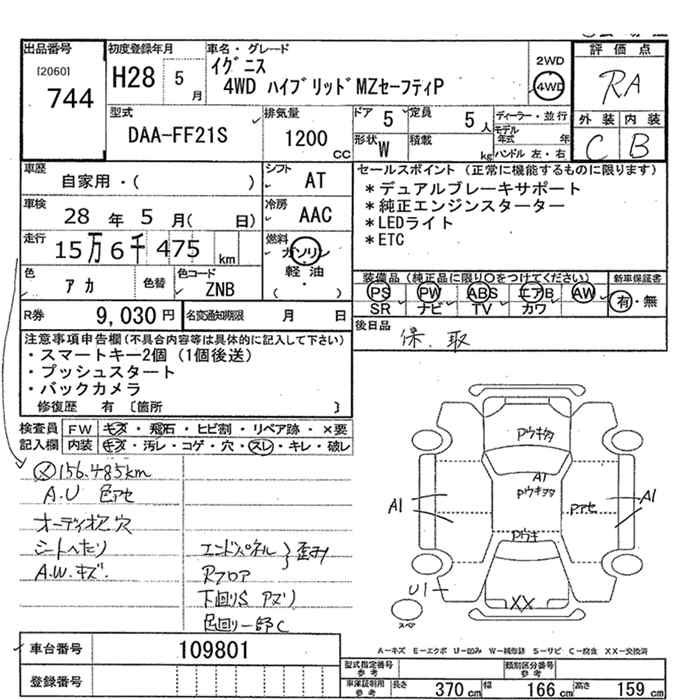 出品番号
[2060]
744
初度登録年月
H28 5 月
車名・グレード
イグニス
4WD ハイブリッドMZセーフティP
2WD
4WD
評価点
RA
外装 内装
C B
型式
DAA-FF21S
排気量
1200 CC
ドア 5
定員 5 人
形状 W
積載 kg
ディーラー・並行
モデル年式 年
ハンドル 左・右
車歴
自家用・( )
シフト AT
車検
28 年 5 月( 日)
冷房 AAC
走行
15万6千475 km
燃料
ガソリン
軽・油
( )
色 アカ
色替
色コード ZNB
R券 9,030円
名変通知期限 月 日
セールスポイント (正常に機能するものに限ります)
*デュアルブレーキサポート
*純正エンジンスターター
*LEDライト
*ETC
装備品 (純正品に限り○をつけてください)
新車保証書
PS PW ABS エアB AW
SR ナビ TV カワ
有・無
後日品
保.取
注意事項申告欄(不具合内容等は具体的に記入して下さい)
・スマートキー2個 (1個後送)
・プッシュスタート
・バックカメラ
修復歴 有 〔箇所 〕
検査員記入欄
FW キズ・飛石・ヒビ割・リペア跡・×要
内装 キズ・汚レ・コゲ・穴・スレ・キレ・破レ
メ 156.485km
A.U 色アセ
オーディオ穴
シートへたり
A.W.キズ.
エンドパネル
Rフロア
歪み
下回りS アズリ
色回り一部C
Pウキタ
A1
Pウキヲタ
Pウキ
A1
Pアセ
A1
U1
XX
スペア
A-キズ E-エクボ U-凹み W-補修跡 S-サビ C-腐食 XX-交換済
車台番号 109801
登録番号
型式指定番号 参考
類別区分番号 参考
車庫証明用 参考
長さ 370 cm
幅 166 cm
高さ 159 cm